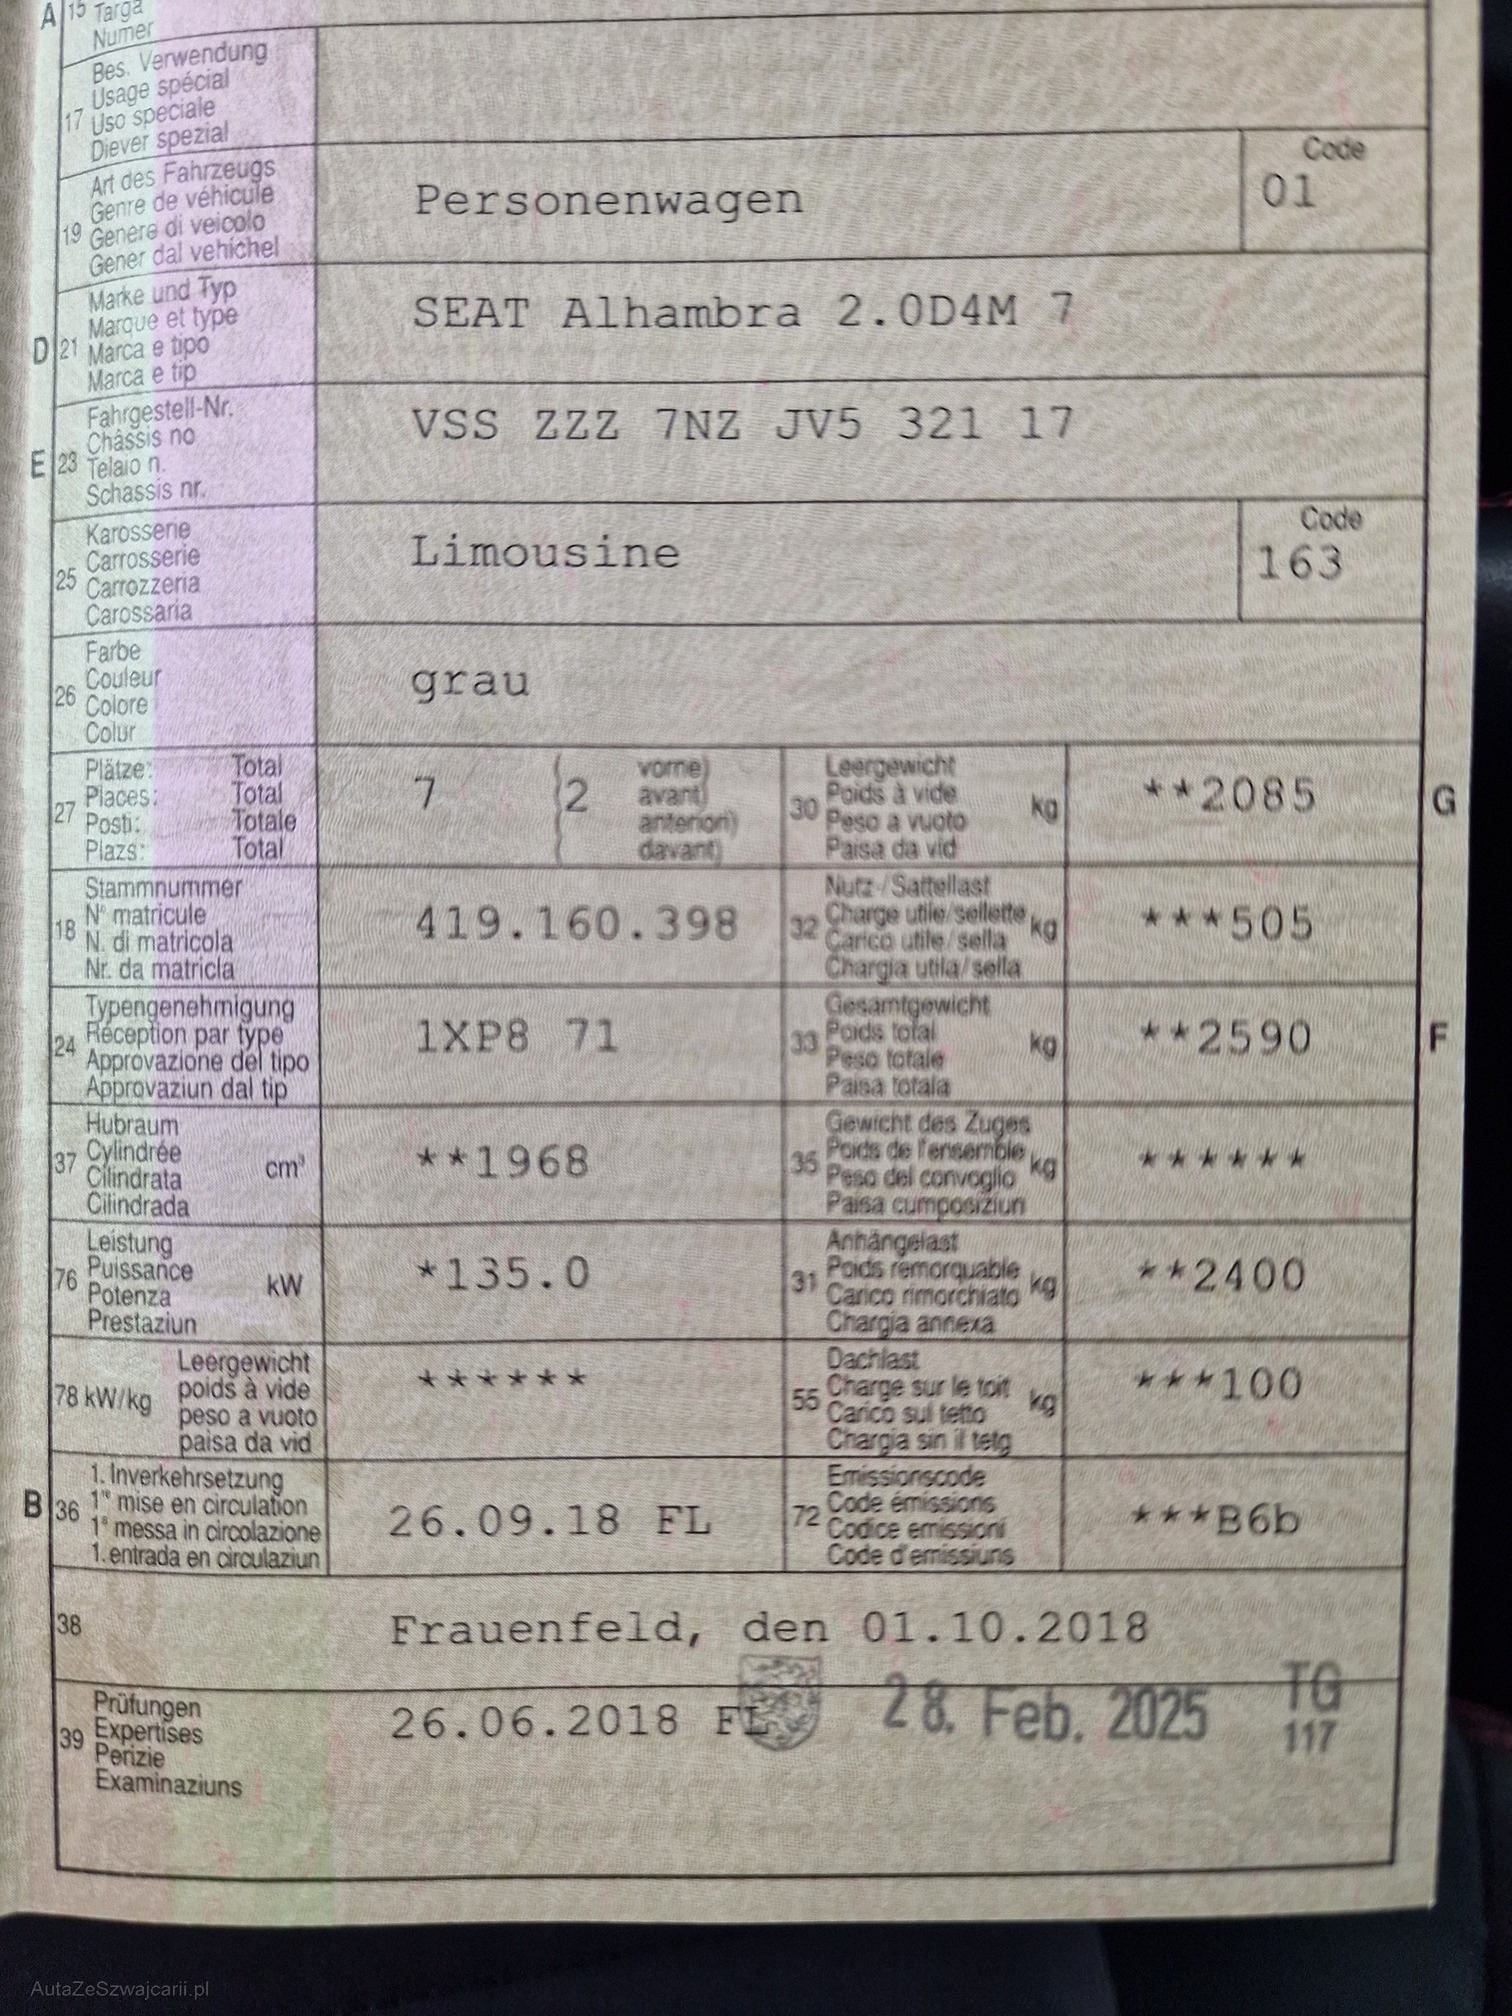 A 15 Targa
Numer
17 Bes. Verwendung
Usage spécial
Uso speciale
Diever spezial
19 Art des Fahrzeugs
Genre de véhicule
Genere di veicolo
Gener dal vehichel
Personenwagen
Code
01
D 21 Marke und Typ
Marque et type
Marca e tipo
Marca e tip
SEAT Alhambra 2.0D4M 7
E 23 Fahrgestell-Nr.
Châssis no
Telaio n.
Schassis nr.
VSS ZZZ 7NZ JV5 321 17
25 Karosserie
Carrosserie
Carrozzeria
Carossaria
Limousine
Code
163
26 Farbe
Couleur
Colore
Colur
grau
27 Plätze: Total
Places: Total
Posti: Totale
Plazs: Total
7 (2 vorne)
avant)
anteriori)
davant)
30 Leergewicht
Poids à vide
Peso a vuoto
Paisa da vid
kg
**2085
G
18 Stammnummer
N° matricule
N. di matricola
Nr. da matricla
419.160.398
32 Nutz-/Sattellast
Charge utile/sellette
Carico utile/sella
Chargia utila/sella
kg
***505
24 Typengenehmigung
Réception par type
Approvazione del tipo
Approvaziun dal tip
1XP8 71
33 Gesamtgewicht
Poids total
Peso totale
Paisa totala
kg
**2590
F
37 Hubraum
Cylindrée
Cilindrata
Cilindrada
cm³
**1968
35 Gewicht des Zuges
Poids de l'ensemble
Peso del convoglio
Paisa cumposiziun
kg
******
76 Leistung
Puissance
Potenza
Prestaziun
kW
*135.0
31 Anhängelast
Poids remorquable
Carico rimorchiato
Chargia annexa
kg
**2400
78 kW/kg Leergewicht
poids à vide
peso a vuoto
paisa da vid
******
55 Dachlast
Charge sur le toit
Carico sul tetto
Chargia sin il tetg
kg
***100
B 36 1. Inverkehrsetzung
1re mise en circulation
1a messa in circolazione
1. entrada en circulaziun
26.09.18 FL
72 Emissionscode
Code émissions
Codice emissioni
Code d'emissiuns
***B6b
38 Frauenfeld, den 01.10.2018
39 Prüfungen
Expertises
Perizie
Examinaziuns
26.06.2018 FL
28. Feb. 2025
TG
117
AutaZeSzwajcarii.pl